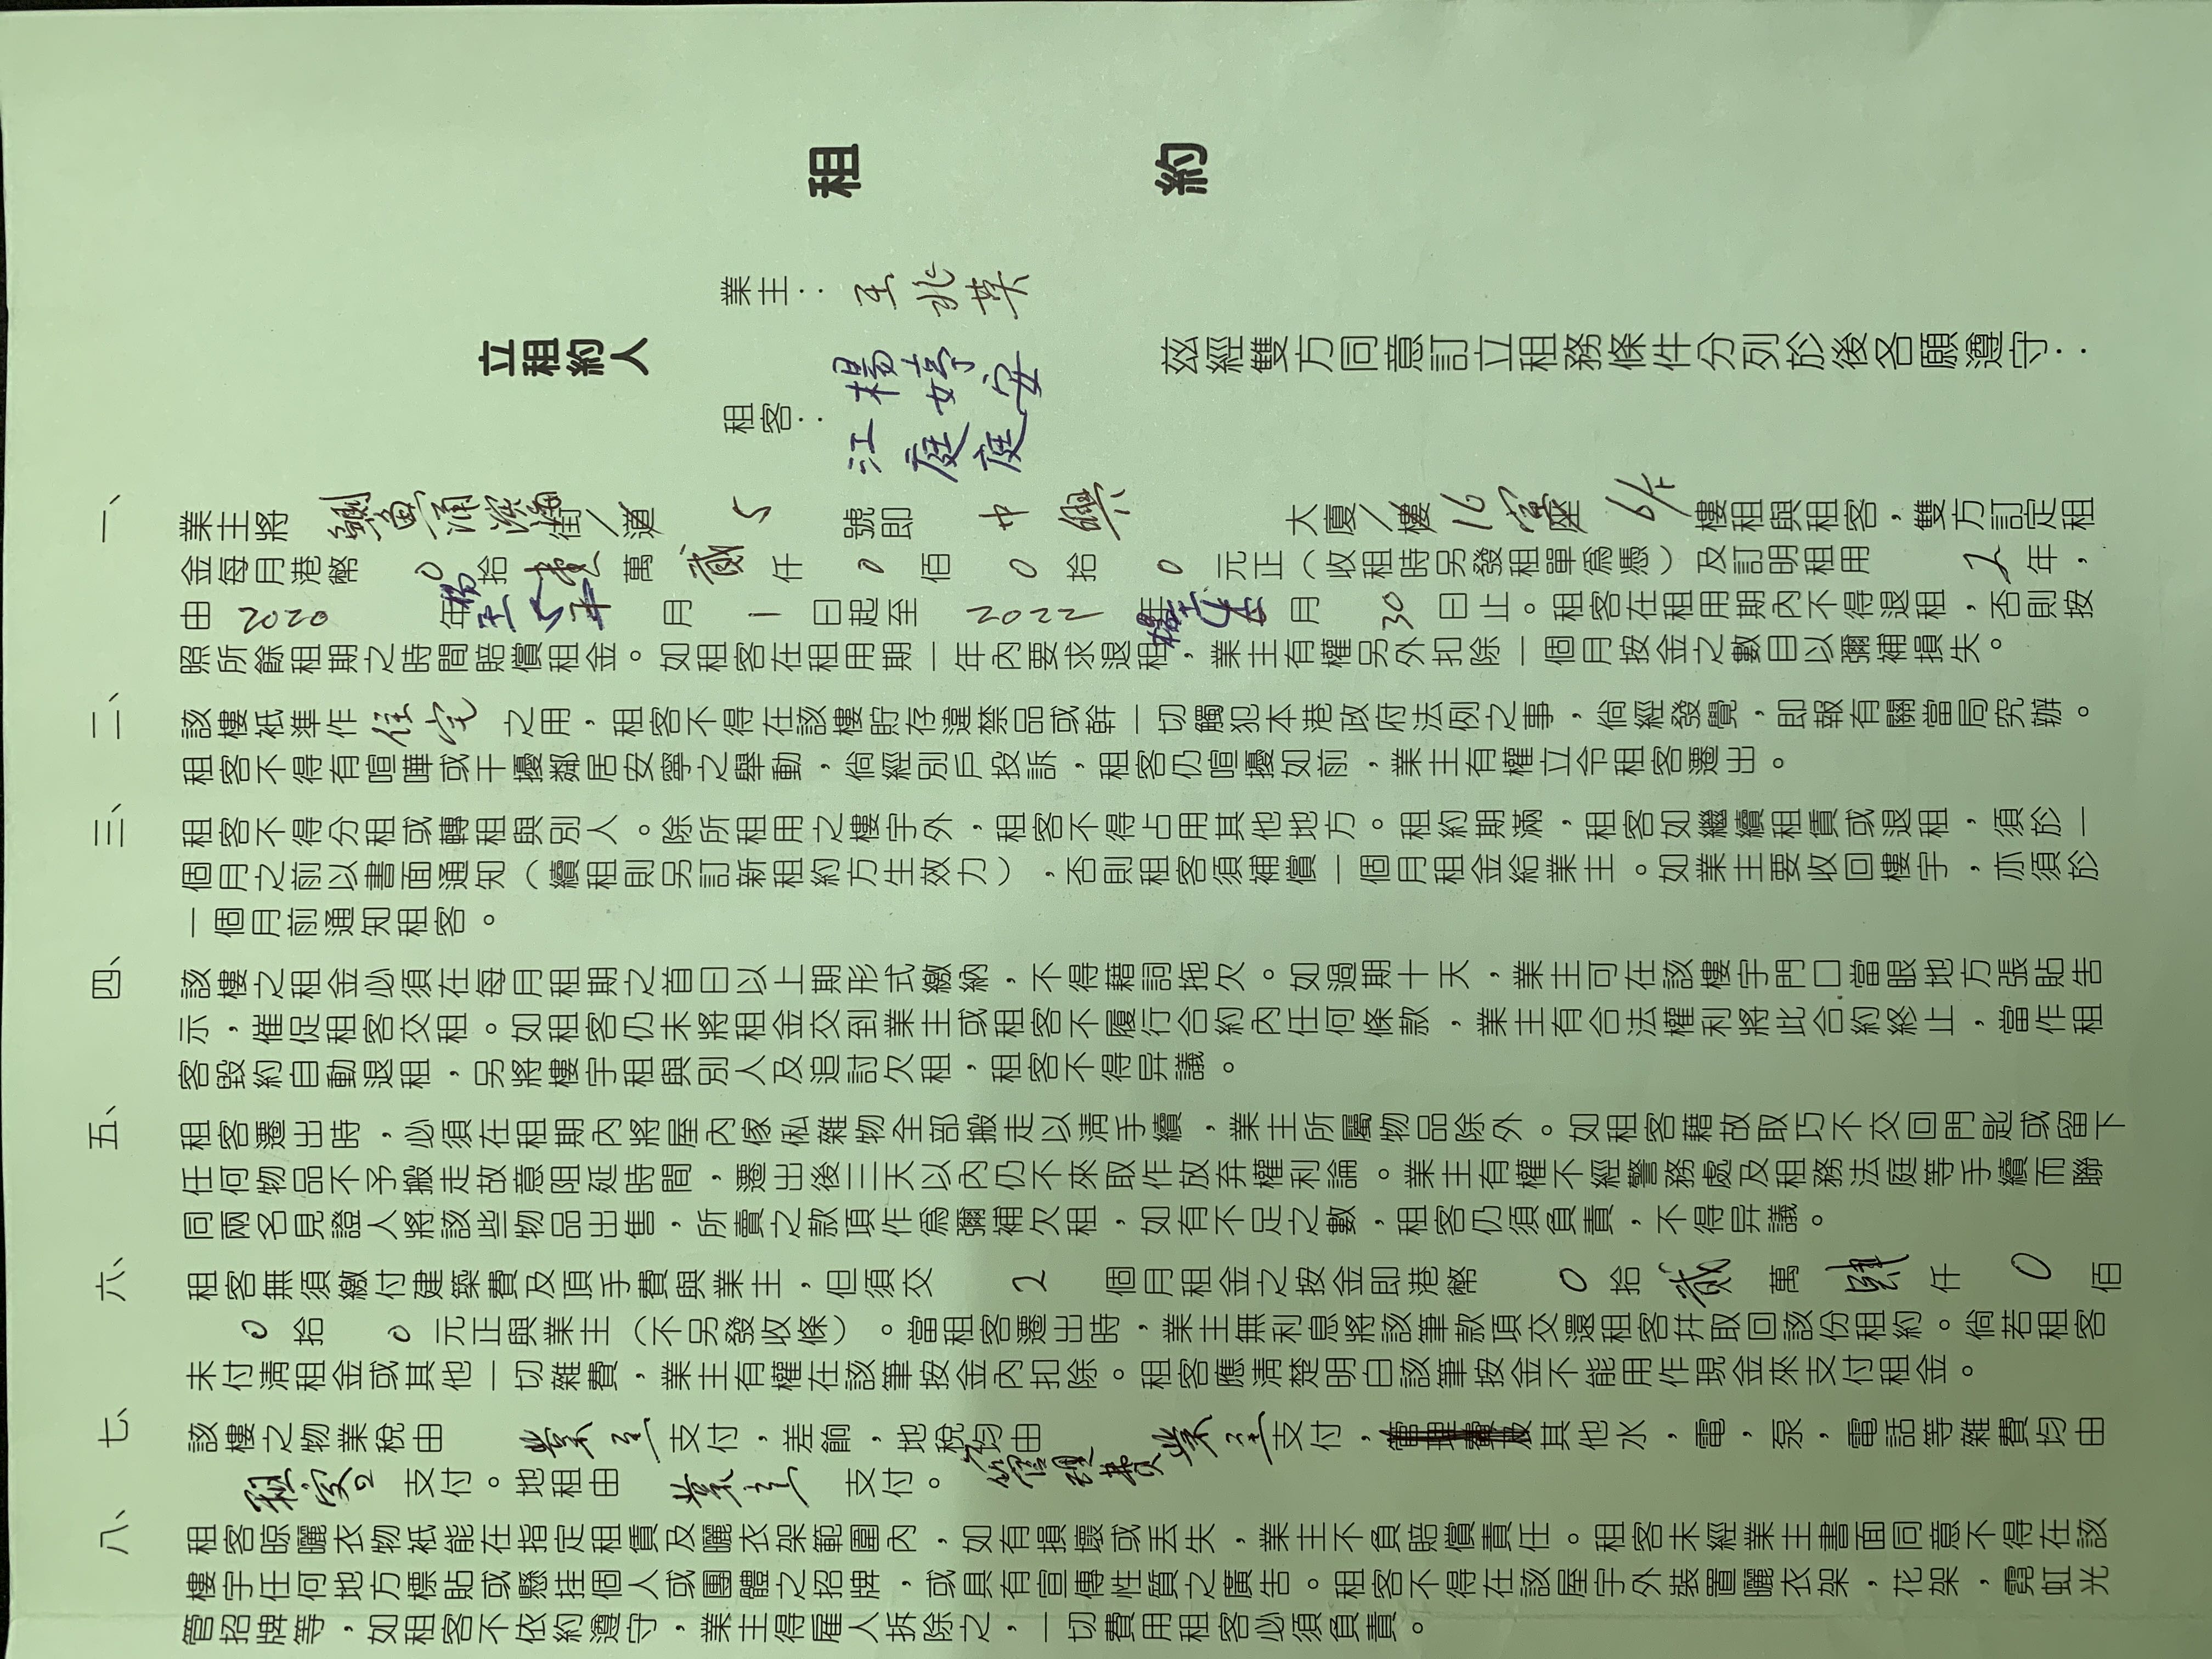 租約
立租約人
業主：王兆英
租客：楊婷安
江庭庭
茲經雙方同意訂立租務條件分列於後各願遵守：
一、業主將 鰂魚涌濱海街／道 5 號即 中興 大廈／樓 16 座 6/F 樓租與租客，雙方訂定租
金每月港幣 0 拾 壹 萬 貳 仟 0 佰 0 拾 0 元正（收租時另發租單為憑）及訂明租用 2 年，
由 2020 年 月 1 日起至 2022 年 月 30 日止。租客在租用期內不得退租，否則按
照所餘租期之時間賠償租金。如租客在租用期一年內要求退租，業主有權另外扣除一個月按金之數目以彌補損失。
二、該樓祇準作 住宅 之用，租客不得在該樓貯存違禁品或幹一切觸犯本港政府法例之事，倘經發覺，即報有關當局究辦。
租客不得有喧嘩或干擾鄰居安寧之舉動，倘經別戶投訴，租客仍喧擾如前，業主有權立令租客遷出。
三、租客不得分租或轉租與別人。除所租用之樓宇外，租客不得占用其他地方。租約期滿，租客如繼續租賃或退租，須於一
個月之前以書面通知（續租則另訂新租約方生效力），否則租客須補償一個月租金給業主。如業主要收回樓宇，亦須於
一個月前通知租客。
四、該樓之租金必須在每月租期之首日以上期形式繳納，不得藉詞拖欠。如過期十天，業主可在該樓宇門口當眼地方張貼告
示，催促租客交租。如租客仍未將租金交到業主或租客不履行合約內任何條款，業主有合法權利將此合約終止，當作租
客毀約自動退租，另將樓宇租與別人及追討欠租，租客不得异議。
五、租客遷出時，必須在租期內將屋內傢俬雜物全部搬走以清手續，業主所屬物品除外。如租客藉故取巧不交回門匙或留下
任何物品不予搬走故意阻延時間，遷出後三天以內仍不來取作放弃權利論。業主有權不經警務處及租務法庭等手續而聯
同兩名見證人將該些物品出售，所賣之款項作為彌補欠租，如有不足之數，租客仍須負責，不得异議。
六、租客無須繳付建築費及頂手費與業主，但須交 2 個月租金之按金即港幣 0 拾 貳 萬 肆 仟 0 佰
0 拾 0 元正與業主（不另發收條）。當租客遷出時，業主無利息將該筆款項交還租客幷取回該份租約。倘若租客
未付清租金或其他一切雜費，業主有權在該筆按金內扣除。租客應清楚明白該筆按金不能用作現金來支付租金。
七、該樓之物業稅由 業主 支付，差餉，地稅均由 業主 支付，管理費及其他水，電，泵，電話等雜費均由
租客 支付。地租由 業主 支付。管理費
八、租客晾曬衣物祇能在指定租賃及曬衣架範圍內，如有損壞或丟失，業主不負賠償責任。租客未經業主書面同意不得在該
樓宇任何地方標貼或懸挂個人或團體之招牌，或具有宣傳性質之廣告。租客不得在該屋宇外裝置曬衣架，花架，霓虹光
管招牌等，如租客不依約遵守，業主得雇人拆除之，一切費用租客必須負責。